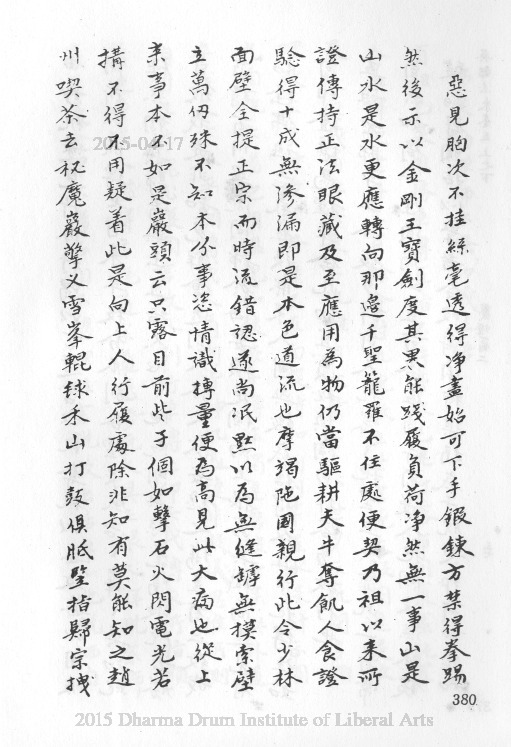 惡見胸次不挂絲毫透得净盡始可下手鍛鍊方禁得拳踢
然後示以金剛王寶劍度其果能踐履負荷净然無一事山是
山水是水更應轉向那邊千聖籠羅不住處便契乃祖以來所
證傳持正法眼藏及至應用為物仍當驅耕夫牛奪飢人食證
驗得十成無滲漏即是本色道流也摩竭陁國親行此令少林
面壁全提正宗而時流錯認遂尚泯默以為無縫罅無摸索壁
立萬仞殊不知本分事恣情識摶量便為高見此大病也從上
来事本不如是巖頭云只露目前些子個如擊石火閃電光若
搆不得不用疑着此是向上人行履處除非知有莫能知之趙
州喫茶去秘魔巖擎义雪峯輥毬禾山打皷俱胝竪指歸宗拽
380
2015-04-17
2015 Dharma Drum Institute of Liberal Arts